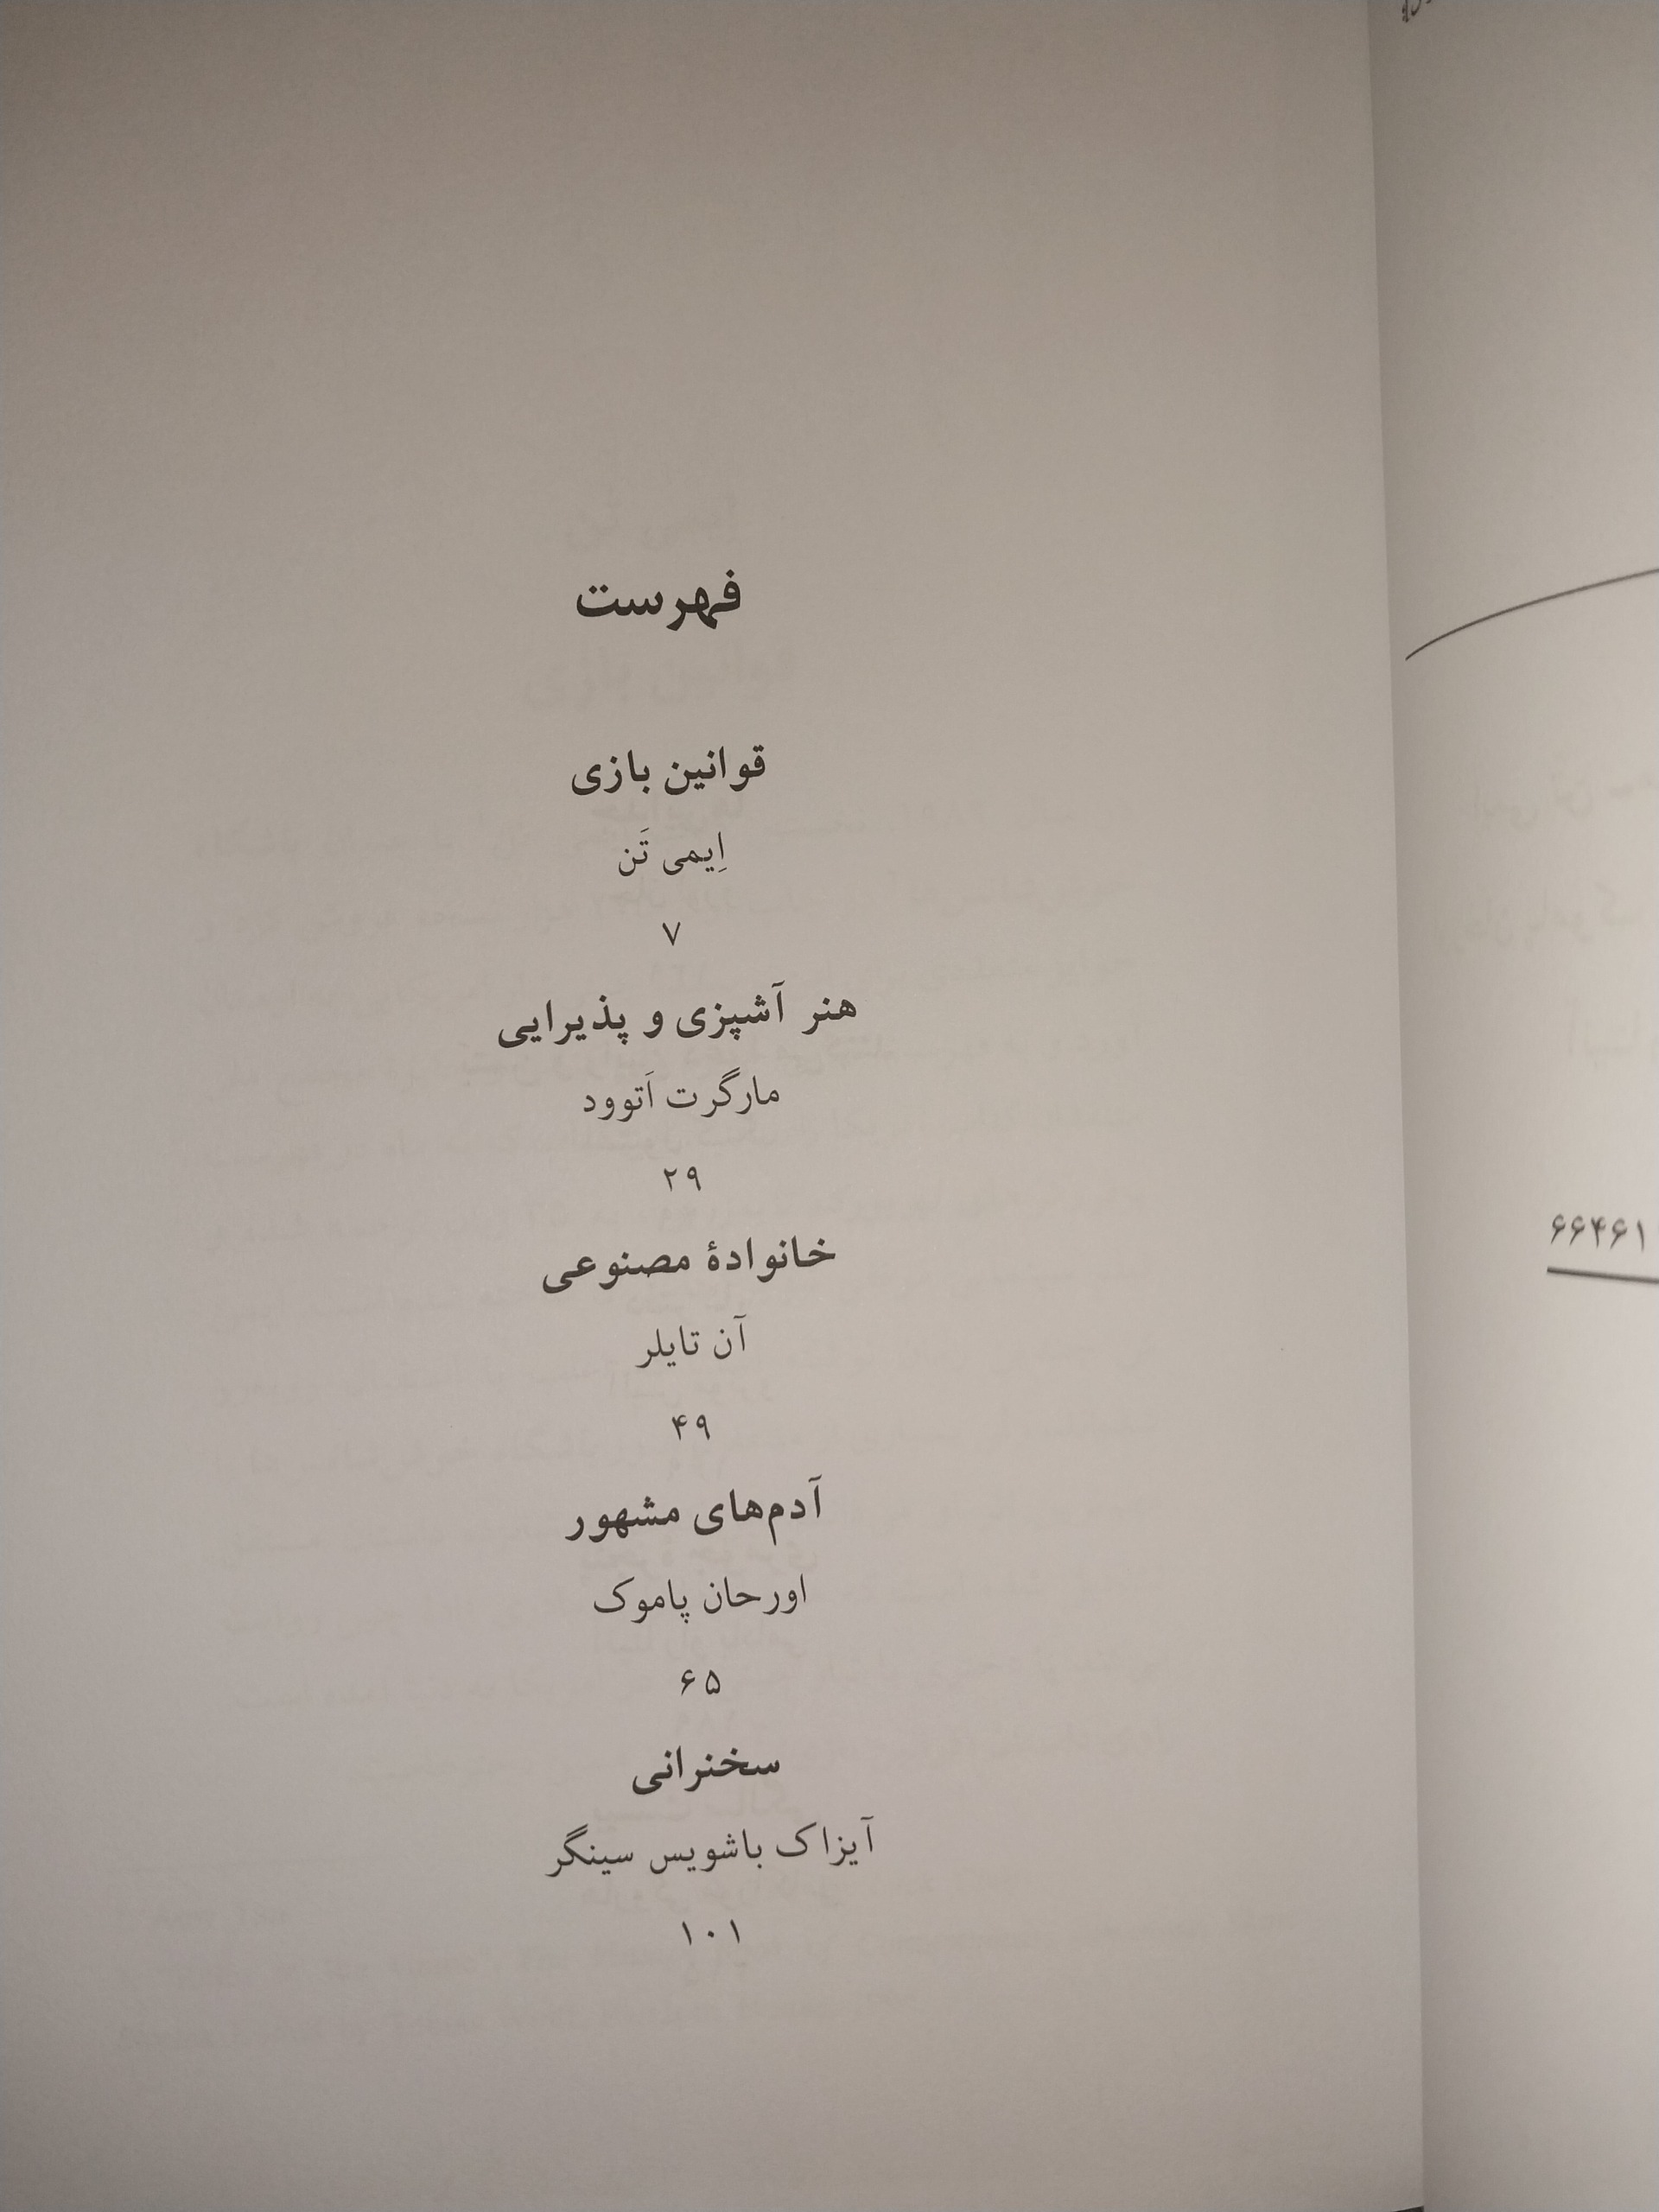 فهرست
قوانین بازی
اِیمی تَن
۷
هنر آشپزی و پذیرایی
مارگرت اَتوود
۲۹
خانوادهٔ مصنوعی
آن تایلر
۴۹
آدم‌های مشهور
اورحان پاموک
۶۵
سخنرانی
آیزاک باشویس سینگر
۱۰۱
۶۶۴۶۱